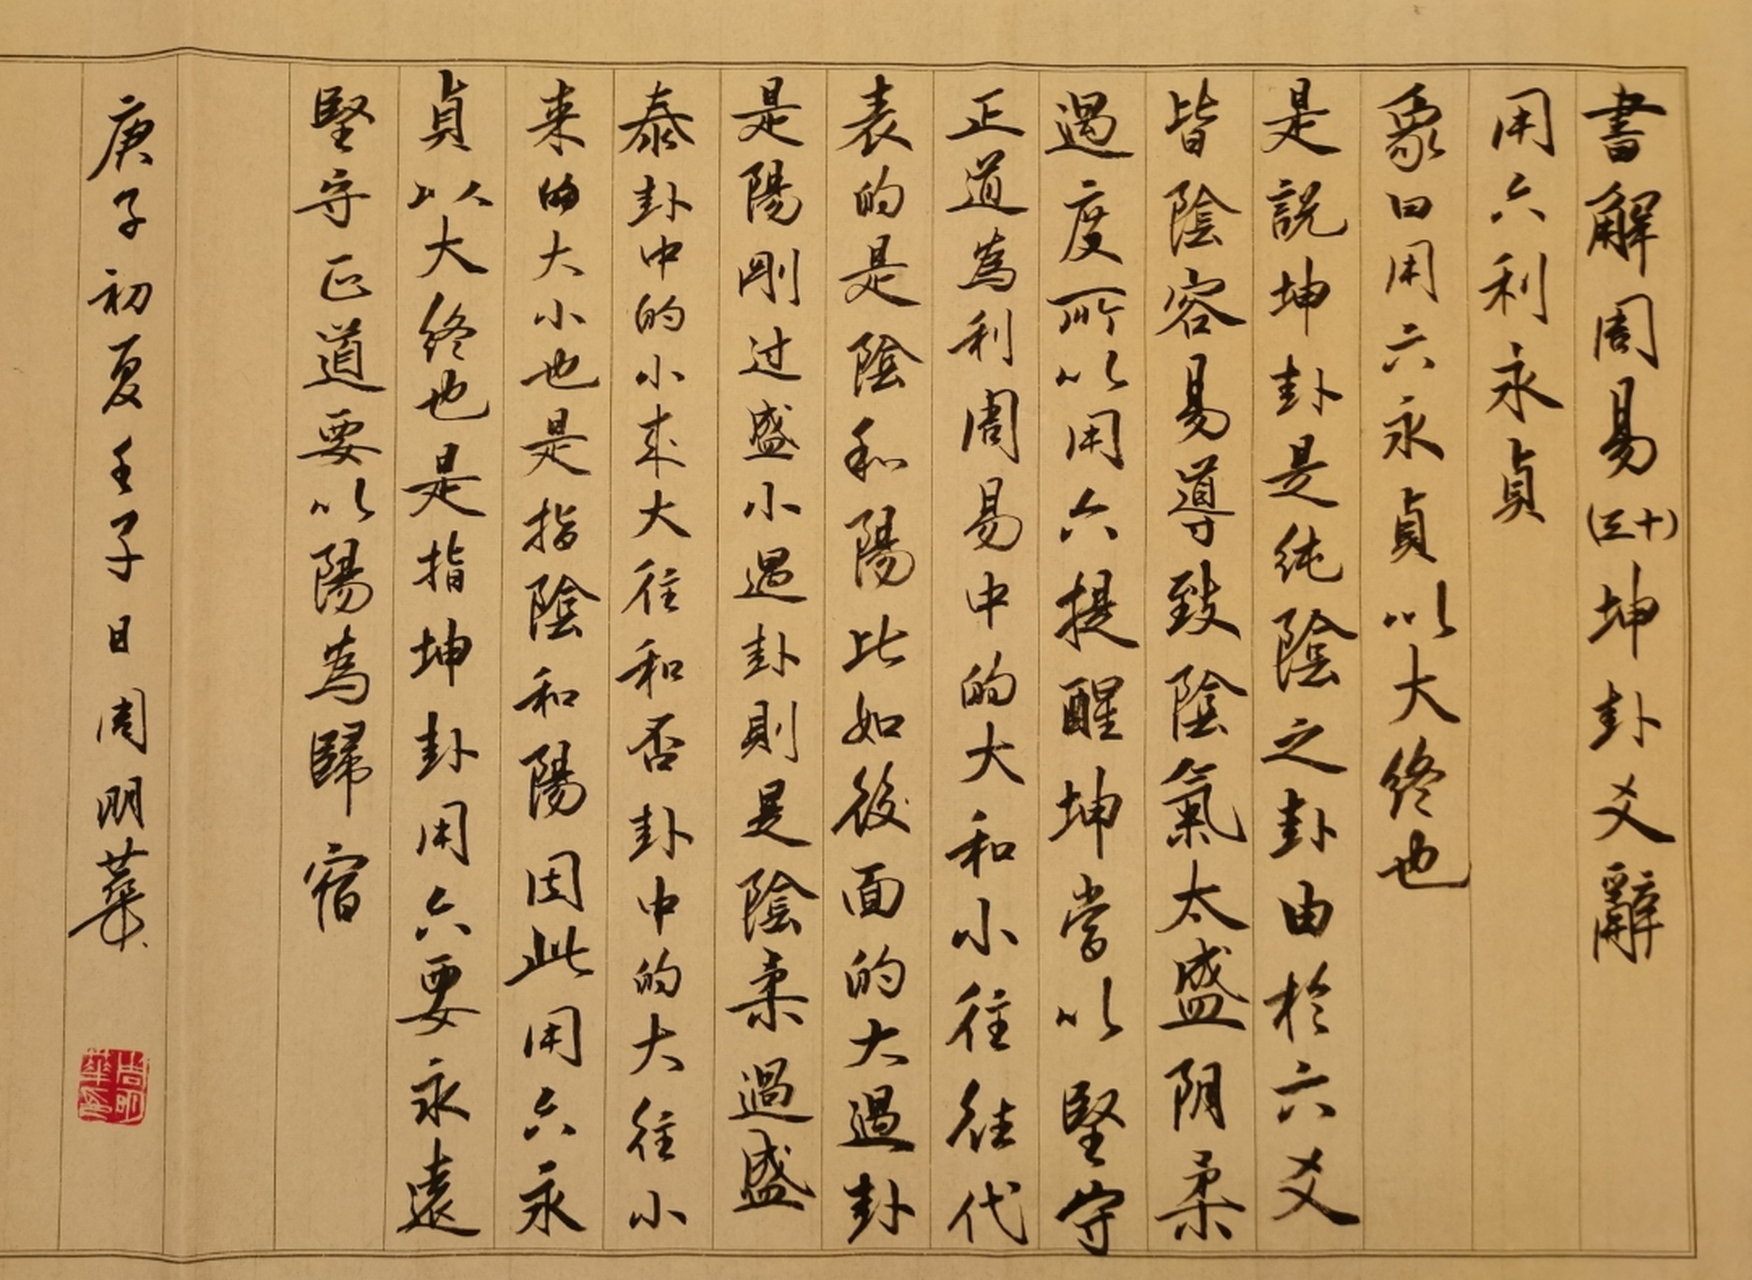 書解周易(三十)坤卦爻辭
用六利永貞
象曰用六永貞以大終也
是説坤卦是純陰之卦由於六爻
皆陰容易導致陰氣太盛阴柔
過度所以用六提醒坤當以堅守
正道為利周易中的大和小往往代
表的是陰和陽比如後面的大過卦
是陽剛过盛小過卦則是陰柔過盛
泰卦中的小来大往和否卦中的大往小
来的大小也是指陰和陽因此用六永
貞以大終也是指坤卦用六要永遠
堅守正道要以陽為歸宿
庚子初夏壬子日周明華
周明華印